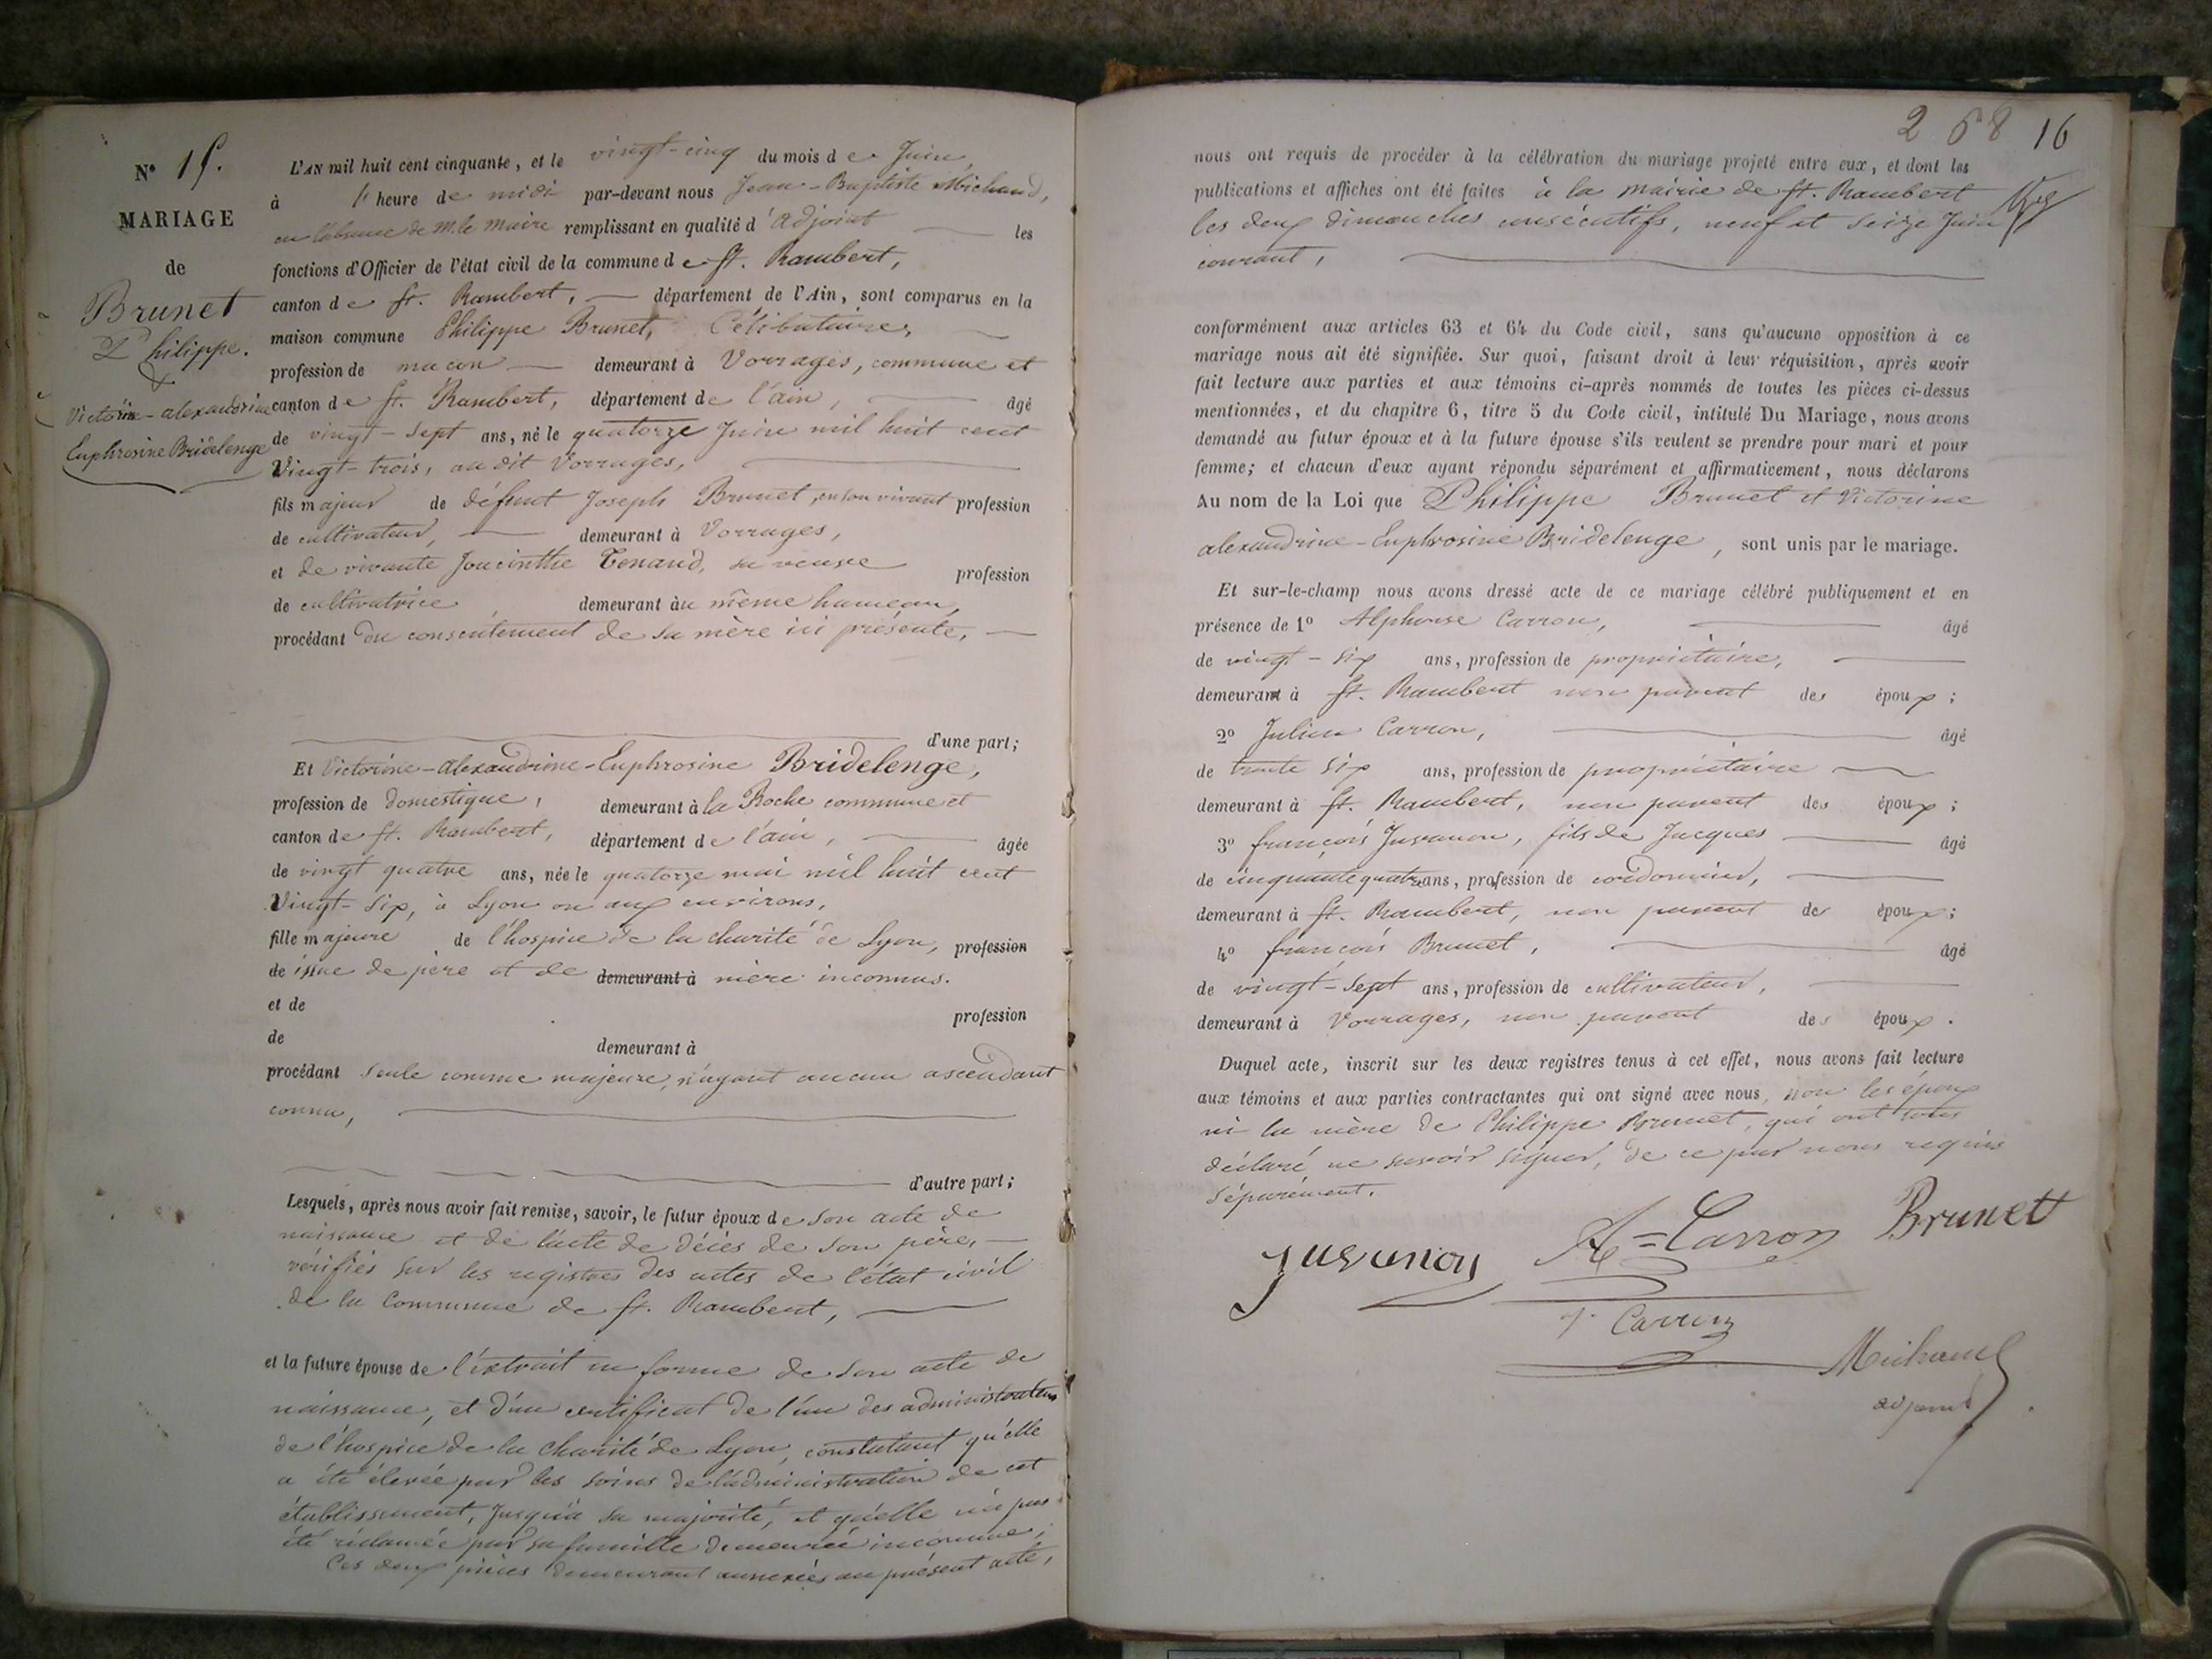 N° 15.
MARIAGE
de
Brunet
Philippe.
&
Victorine-alexandrine
Euphrosine Bridelenge
L'AN mil huit cent cinquante, et le vingt-cinq du mois de Juin,
à l'heure de midi par-devant nous Jean-Baptiste Michaud,
en l'absence de M. le Maire remplissant en qualité d'adjoint les
fonctions d'Officier de l'état civil de la commune de St. Rambert,
canton de St. Rambert, département de l'Ain, sont comparus en la
maison commune Philippe Brunet, Célibataire,
profession de maçon demeurant à Vorrages, commune et
canton de St. Rambert, département de l'ain, âgé
de vingt-sept ans, né le quatorze Juin mil huit cent
Vingt-trois, au dit Vorrages,
fils majeur de défunt Joseph Brunet, en son vivant profession
de cultivateur, demeurant à Vorrages,
et de vivante Jacinthe Tenand, sa veuve profession
de cultivatrice, demeurant au même hameau,
procédant du consentement de sa mère ici présente,
d'une part;
Et Victorine-alexandrine-Euphrosine Bridelenge,
profession de domestique, demeurant à la Roche commune et
canton de St. Rambert, département de l'ain, âgée
de vingt quatre ans, née le quatorze mai mil huit cent
Vingt-six, à Lyon ou aux environs,
fille majeure de l'hospice de la charité de Lyon, profession
de issue de père et de demeurant à mère inconnus.
et de profession
de demeurant à
procédant seule comme majeure, n'ayant aucun ascendant
connu,
d'autre part;
Lesquels, après nous avoir fait remise, savoir, le futur époux de son acte de
naissance et de l'acte de décès de son père,
vérifiés sur les registres des actes de l'état civil
de la Commune de St. Rambert,
et la future épouse de l'extrait en forme de son acte de
naissance, et d'un certificat de l'un des administrateurs
de l'hospice de la charité de Lyon, constatant qu'elle
a été élevée par les soins de l'administration de cet
établissement, jusqu'à sa majorité, et qu'elle n'a pas
été réclamée par sa famille demeurée inconnue;
Ces deux pièces demeurant annexées au présent acte,
268 16
nous ont requis de procéder à la célébration du mariage projeté entre eux, et dont les
publications et affiches ont été faites à la mairie de St. Rambert
les deux dimanches consécutifs, neuf et seize Juin
courant,
conformément aux articles 63 et 64 du Code civil, sans qu'aucune opposition à ce
mariage nous ait été signifiée. Sur quoi, faisant droit à leur réquisition, après avoir
fait lecture aux parties et aux témoins ci-après nommés de toutes les pièces ci-dessus
mentionnées, et du chapitre 6, titre 5 du Code civil, intitulé Du Mariage, nous avons
demandé au futur époux et à la future épouse s'ils veulent se prendre pour mari et pour
femme; et chacun d'eux ayant répondu séparément et affirmativement, nous déclarons
Au nom de la Loi que Philippe Brunet et Victorine
alexandrine-Euphrosine Bridelenge, sont unis par le mariage.
Et sur-le-champ nous avons dressé acte de ce mariage célébré publiquement et en
présence de 1° Alphonse Carron, âgé
de vingt-six ans, profession de propriétaire,
demeurant à St. Rambert non parent des époux;
2° Julien Carron, âgé
de trente six ans, profession de propriétaire
demeurant à St. Rambert, non parent des époux;
3° françois Juvanon, fils de Jacques âgé
de cinquante quatre ans, profession de cordonnier,
demeurant à St. Rambert, non parent des époux;
4° françois Brunet, âgé
de vingt-sept ans, profession de cultivateur,
demeurant à Vorrages, non parent des époux.
Duquel acte, inscrit sur les deux registres tenus à cet effet, nous avons fait lecture
aux témoins et aux parties contractantes qui ont signé avec nous, non les époux
ni la mère de Philippe Brunet, qui ont tous
déclaré ne savoir signer, de ce par nous requis
séparément.
Juvanon A=Carron Brunet
J. Carron
Michaud
adjoint